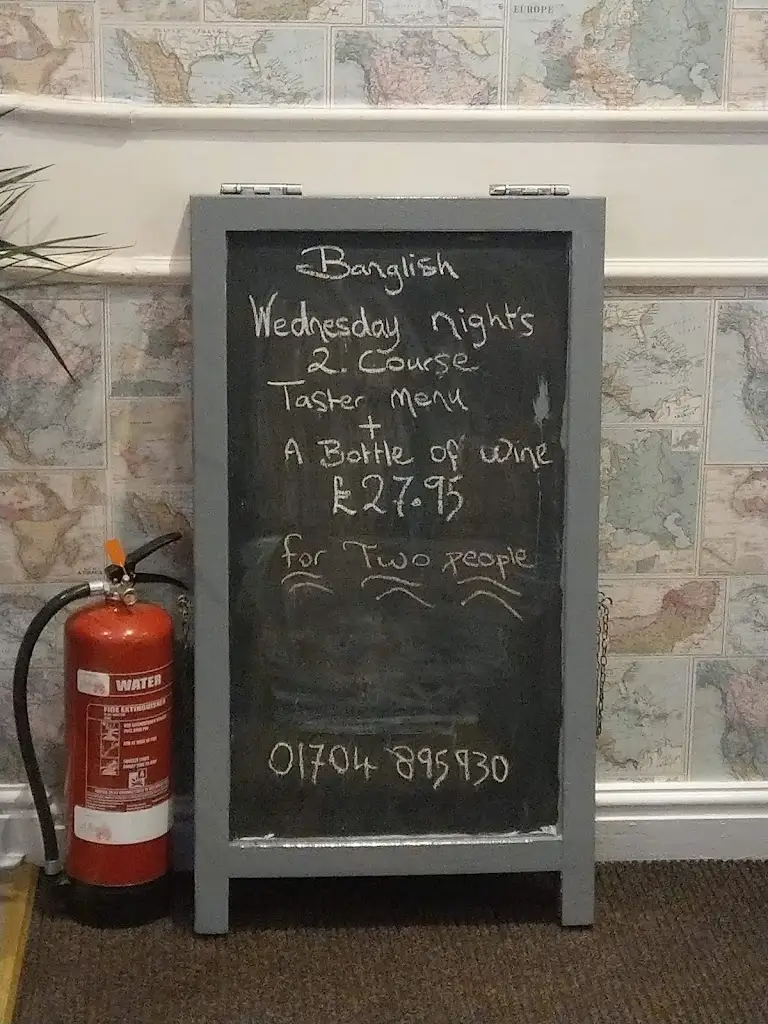 EUROPE
Banglish
Wednesday night's
2. Course
Taster menu
+
A Bottle of wine
£27.95
for Two people
WATER
FIRE EXTINGUISHER
01704 895930